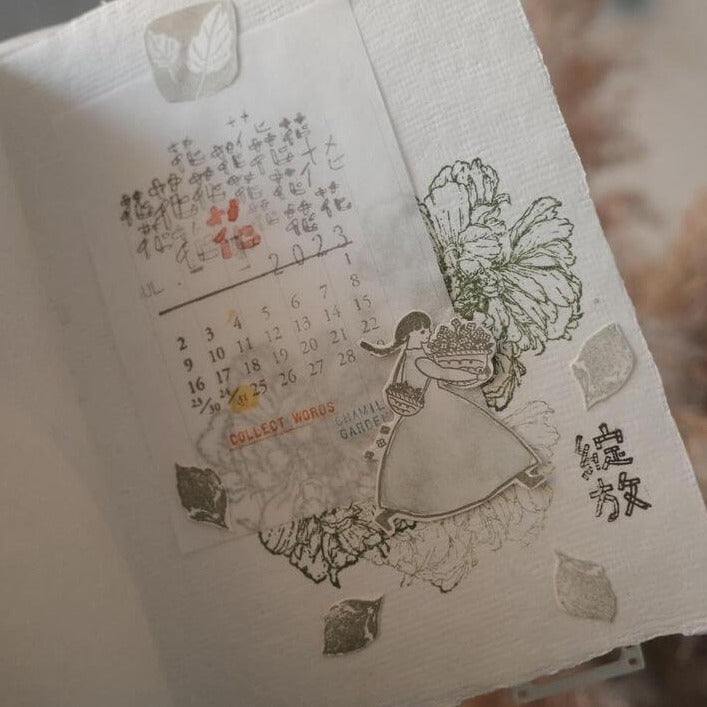 花花花花
花花花花花
花花花花花
花
2023
1
2 3 4 5 6 7 8
9 10 11 12 13 14 15
16 17 18 19 20 21 22
23/30 24/31 25 26 27 28
COLLECT WORDS
CHAMIL
GARDEN
綻放